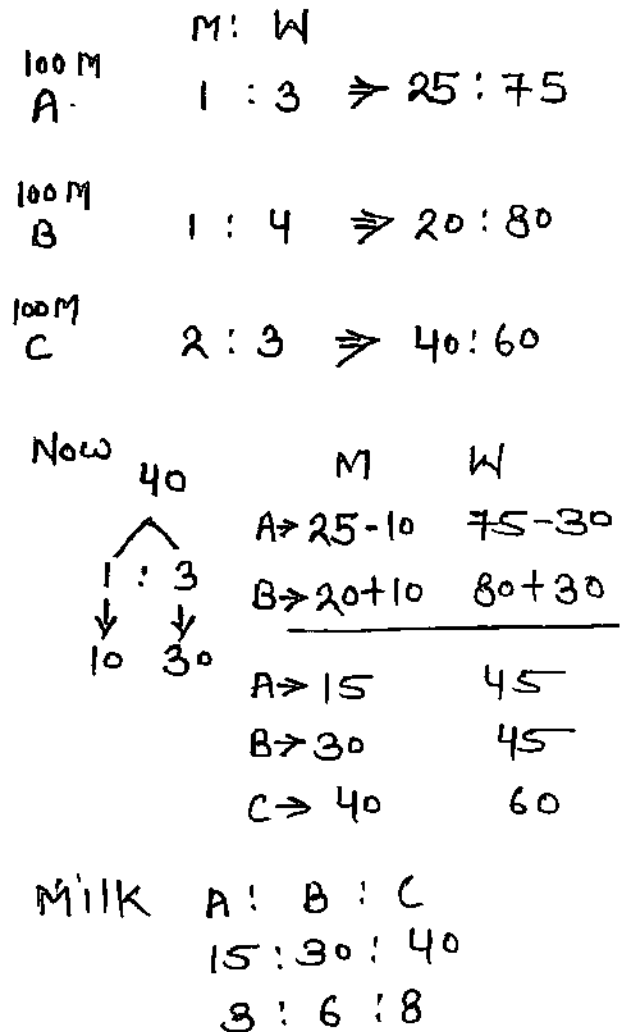 M : W
100 M
A. 1 : 3 ⇒ 25 : 75
100 M
B 1 : 4 ⇒ 20 : 80
100 M
C 2 : 3 ⇒ 40 : 60
Now
40
1 : 3
↓ ↓
10 30
M W
A→ 25-10 75-30
B→ 20+10 80+30
A→ 15 45
B→ 30 45
C→ 40 60
Milk A : B : C
15 : 30 : 40
3 : 6 : 8